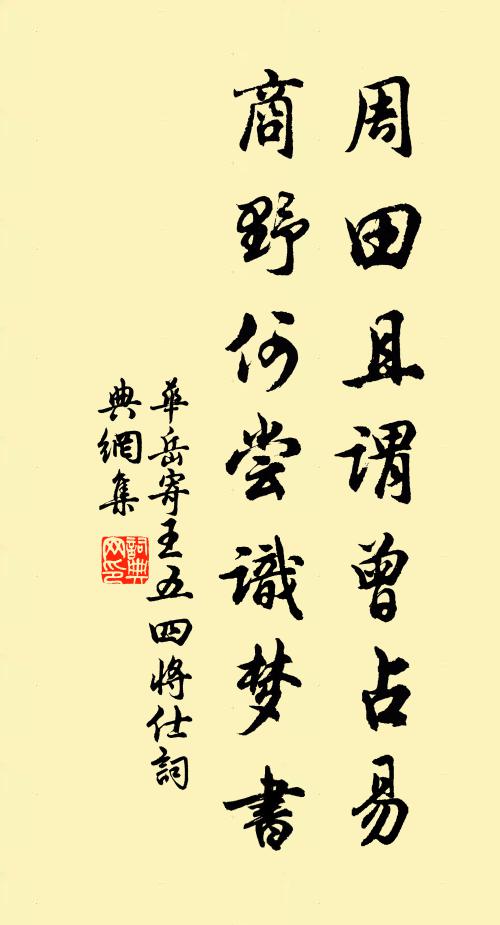 周田且谓曾占易
商野何尝識梦書
華岳寄王五四将仕詞
典網集
詞典
网印